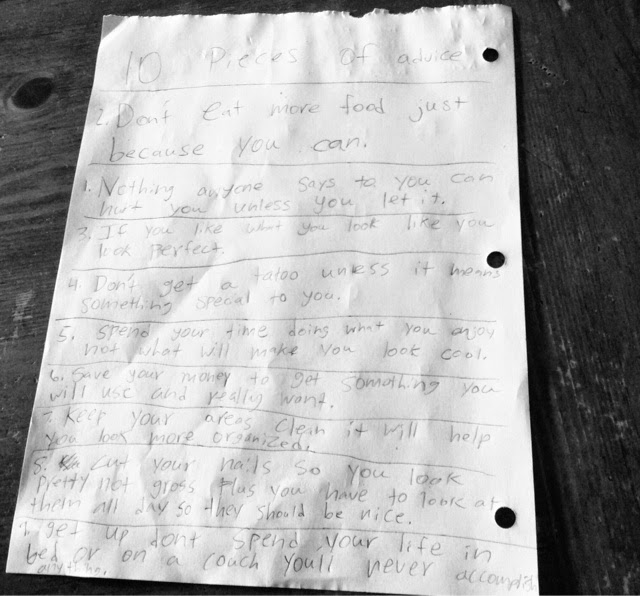 10 Pieces of advice
2. Don't eat more food just
because you can.
1. Nothing anyone says to you can
hurt you unless you let it.
3. If you like what you look like you
look perfect.
4. Don't get a tatoo unless it means
something special to you.
5. spend your time doing what you enjoy
not what will make you look cool.
6. Save your money to get something you
will use and really want.
7. Keep your areas clean it will help
you look more organized.
8. cut your nails so you look
pretty not gross Plus you have to look at
them all day so they should be nice.
9. get up dont spend your life in
bed or on a couch youll never accomplish
anything.